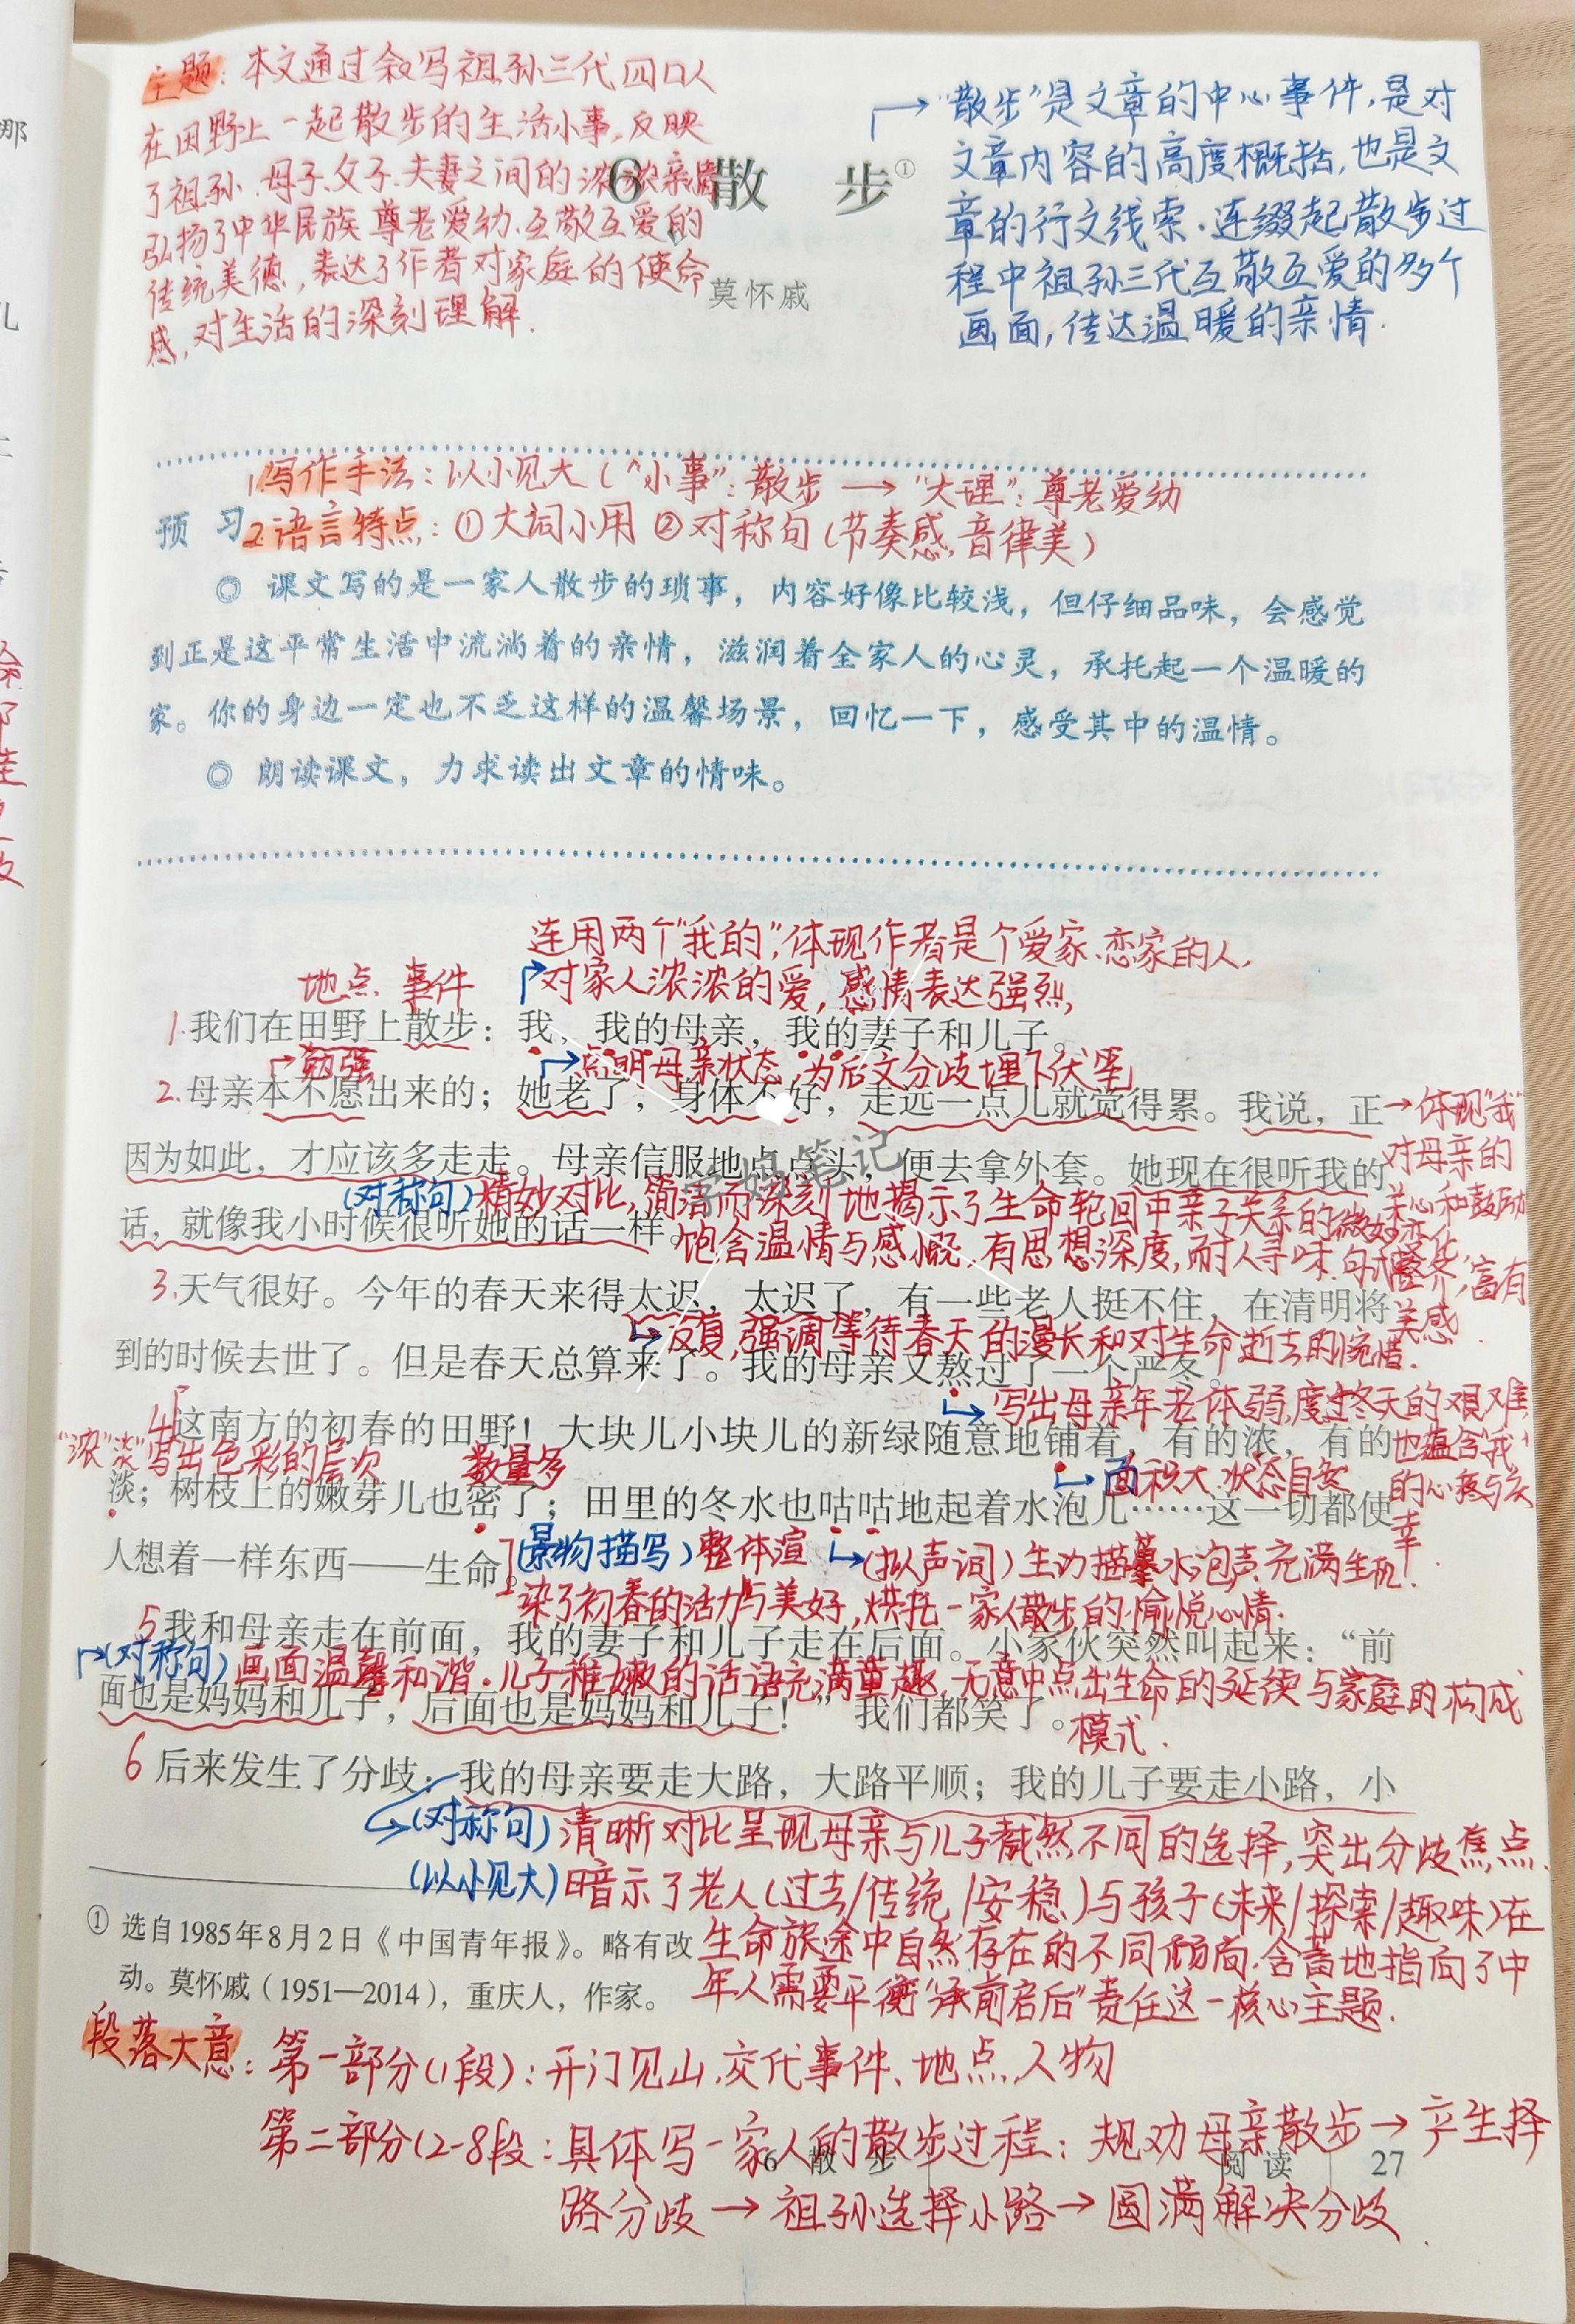 主题：本文通过叙写祖孙三代四口人
在田野上一起散步的生活小事，反映
了祖孙、母子、父子、夫妻之间的浓浓亲情
弘扬了中华民族尊老爱幼、互敬互爱的
传统美德，表达了作者对家庭的使命
感，对生活的深刻理解.
"散步"是文章的中心事件，是对
文章内容的高度概括，也是文
章的行文线索.连缀起散步过
程中祖孙三代互敬互爱的多个
画面，传达温暖的亲情.
6 散 步①
莫怀戚
1.写作手法：以小见大（"小事"：散步→"大理"：尊老爱幼
预 习
2.语言特点：①大词小用 ②对称句（节奏感，音律美）
◎ 课文写的是一家人散步的琐事，内容好像比较浅，但仔细品味，会感觉
到正是这平常生活中流淌着的亲情，滋润着全家人的心灵，承托起一个温暖的
家。你的身边一定也不乏这样的温馨场景，回忆一下，感受其中的温情。
◎ 朗读课文，力求读出文章的情味。
连用两个"我的"，体现作者是个爱家、恋家的人，
地点 事件 对家人浓浓的爱，感情表达强烈，
1.我们在田野上散步：我，我的母亲，我的妻子和儿子。
勉强 点明母亲状态，为后文分歧埋下伏笔
2.母亲本不愿出来的；她老了，身体不好，走远一点儿就觉得累。我说，正
→体现"我"
对母亲的
关心和鼓励
因为如此，才应该多走走。母亲信服地点点头，便去拿外套。她现在很听我的
学妈笔记
（对称句）精妙对比，简洁而深刻地揭示了生命轮回中亲子关系的微妙变化
话，就像我小时候很听她的话一样。
饱含温情与感慨，有思想深度，耐人寻味.句式整齐，富有
美感.
3.天气很好。今年的春天来得太迟，太迟了，有一些老人挺不住，在清明将
反复，强调等待春天的漫长和对生命逝去的惋惜.
到的时候去世了。但是春天总算来了。我的母亲又熬过了一个严冬。
写出母亲年老体弱，度过冬天的艰难
也蕴含"我"
的心疼与关
幸.
4这南方的初春的田野！大块儿小块儿的新绿随意地铺着，有的浓，有的
"浓""淡"写出色彩的层次 数量多 面积大，状态自然
淡；树枝上的嫩芽儿也密了；田里的冬水也咕咕地起着水泡儿……这一切都使
人想着一样东西——生命。
（景物描写）整体渲
染了初春的活力与美好，烘托一家人散步的愉悦心情.
（拟声词）生动描摹水泡声，充满生机！
5我和母亲走在前面，我的妻子和儿子走在后面。小家伙突然叫起来："前
（对称句）画面温馨和谐.儿子稚嫩的话语充满童趣，无意中点出生命的延续与家庭的构成
模式.
面也是妈妈和儿子，后面也是妈妈和儿子！"我们都笑了。
6后来发生了分歧：我的母亲要走大路，大路平顺；我的儿子要走小路，小
（对称句）清晰对比呈现母亲与儿子截然不同的选择，突出分歧焦点.
（以小见大）暗示了老人（过去/传统/安稳）与孩子（未来/探索/趣味）在
生命旅途中自然存在的不同倾向.含蓄地指向了中
年人需要平衡"承前启后"责任这一核心主题.
① 选自1985年8月2日《中国青年报》。略有改
动。莫怀戚（1951—2014），重庆人，作家。
段落大意：第一部分（1段）：开门见山，交代事件、地点、人物
第二部分（2-8段：具体写一家人的散步过程：规劝母亲散步→产生择
路分歧→祖孙选择小路→圆满解决分歧.
6 散 步
阅 读 27